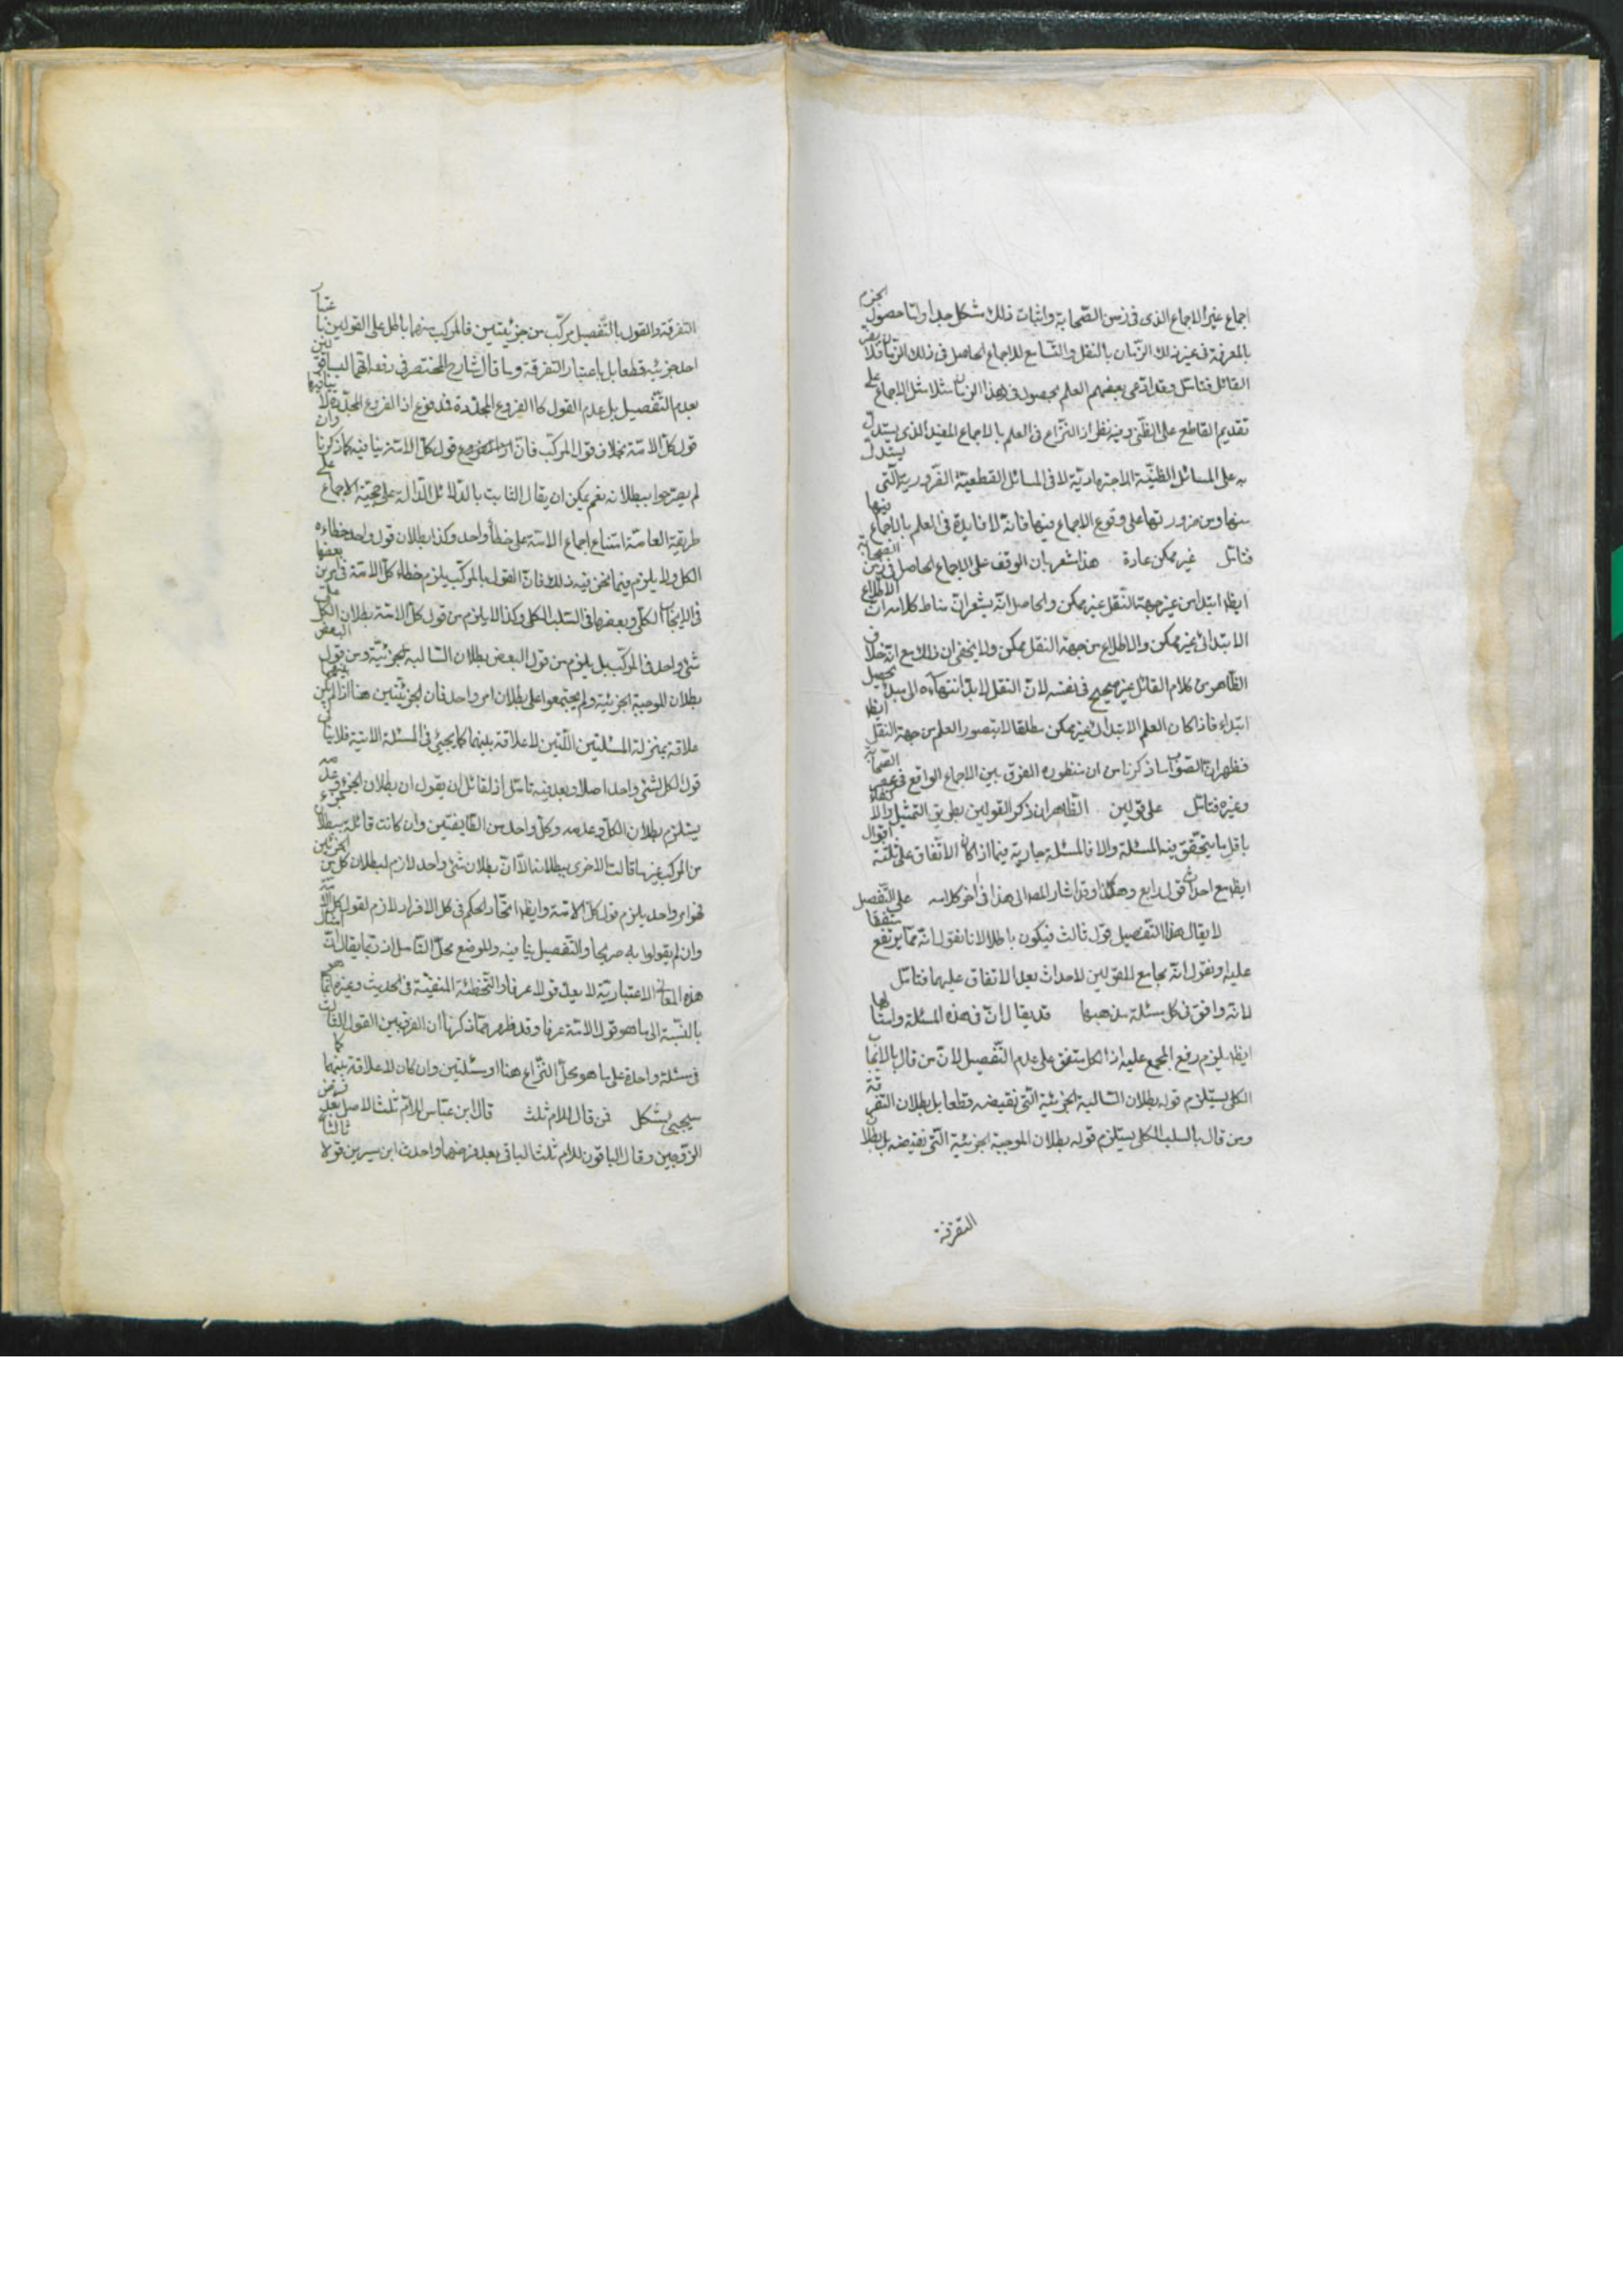 اجماع غير الاجماع الذى فى زمن الصّحابة واثبات ذلك مشكل جدا وامّا حصول الجزم
بالمعرفة فى غير ذلك الزّمان بالنقل والتّسامع للاجماع الحاصل فى ذلك الزّمان فلا
القائل فتامّل وقد ادّعى بعضهم العلم بحصول فى هذا الزمان مثلا مثل الاجماع على
تقديم القاطع على الظّنى وفيه نظر اذ النّزاع فى العلم بالاجماع المفيد الذى يستدلّ
به على المسائل الظنّيّة الاجتهاديّة لا فى المسائل القطعيّة الضّرورية التّى يستدلّ
منها ومن ضرورتها على وقوع الاجماع فيها فانّه لا فايدة فى العلم بالاجماع فيها
فتامّل غير ممكن عادة هذا مشعر بان الوقف على الاجماع الحاصل فى زمن الصّحابة
ايظا ابتداء من غير جهة النّقل غير ممكن والحاصل انّه يشعر انّ مناط كلامه انّ الاطلاع
الابتدائى غير ممكن والاطلاع من جهة النقل ممكن ولا يخفى ان ذلك مع انّه خلاف
الظّاهر من كلام القائل غير صحيح فى نفسه لانّ النقل لا بدّ انتهاؤه الى مبدء تحصيل
ابتداء فاذا كان العلم الابتدائى غير ممكن مطلقا لا يتصور العلم من جهة النقل ايظا
فظهر انّ الصّواب ما ذكرنا من ان منظوره الفرق بين الاجماع الواقع فى عصر الصّحابة
وغيره فتامّل على قولين الظّاهر ان ذكر القولين بطريق التمثيل والاكتفاء
باقل ما يتحقّق فيه المسئلة والا فالمسئلة جارية فيما اذا كان الاتّفاق على ثلثة اقوال
ايظا مع احداث قول رابع وهكذا وقد اشار المص الى هذا فى اخر كلامه على التّفصيل
لا يقال هذا التفصيل قول ثالث فيكون باطلا لانا نقول انّه ممّا يرتفع متّفقا
عليه او نقول انّه مجامع للقولين لاحداث بعد الاتفاق عليهما فتامّل
لانّه وافق فى كل مسئلة مذهبها قد يقال انّ فى هذه المسئلة وامثالها
ايظا يلزم رفع المجمع عليه اذ الكل متفق على عدم التّفصيل لانّ من قال بالايجاب
الكلى يستلزم قوله بطلان السّالبة الجزئية الّتى نقيضه قطعا بل بطلان التفرقة
ومن قال بالسلب الكلى يستلزم قوله بطلان الموجبة الجزئية الّتى نقيضه بل بطلان
التفرقة
التفرقة والقول بالتّفصيل مركّب من جزئيتين فالمركب منهما باطل على القولين باعتبار
احد جزئيه قطعا بل باعتبار التفرقة وما قال شارح المختصر فى دفعه انّهما ليسا قولين
بعدم التّفصيل بل عدم القول كالفروع المجدّدة فمدفوع اذ الفروع المجدّدة لا ينافيها
قول كلّ الامّة بخلاف قول المركّب فانّ قول كلّ الامّة ينافيه كما ذكرنا وان
لم يصرّحوا ببطلانه نعم يمكن ان يقال الثابت بالدّلائل الدّالة على حجّيّة الاجماع على
طريقة العامّة امتناع اجماع الامّة على خطأ واحد وكذا بطلان قول واحد خطاءه
الكل ولا يلزم فيما نحن فيه ذلك فانّ القول بالمركّب يلزم خطاء كلّ الامّة فى امرين بعضها
فى الايجاب الكلّى وبعضها فى السّلب الكلّى وكذا لا يلزم من قول كلّ الامّة بطلان الكلّ على
شئ واحد فى المركّب بل يلزم من قول البعض بطلان السّالبة الجزئيّة ومن قول البعض
بطلان الموجبة الجزئية ولم يجتمعوا على بطلان امر واحد فان الجزئيّتين هنا اذ لم يكن بينهما
علاقة بمنزلة المسئلتين اللّتين لا علاقة بينهما كما يجئ فى المسئلة الاتية فلا ينافى
قول الكل لشئ واحد اصلا وبعد فيه تامّل اذ لقائل ان يقول ان بطلان الجزء وعدمه
يستلزم بطلان الكلّ وعدمه وكلّ واحد من الطّايفتين وان كانت قائلة ببطلان جزء
من المركّب غير ما قالت الاخرى ببطلانه الّا انّ بطلان شئ واحد لازم لبطلان كلّ من الجزئين
فهو امر واحد يلزم قول كلّ الامّة وايظا اتّحاد الحكم فى كل الافراد لازم لقول كلّ الامّة
وان لم يقولوا به صريحا والتّفصيل ينافيه والموضع محلّ التّامل اذ ربّما يقال انّ امثال
هذه المعانى الاعتباريّة لا يعدّ قولا عرفا والتّخطئة المنفيّة فى الحديث وغيره انّما هو
بالنّسبة الى ما هو قول الامّة عرفا وقد ظهر ممّا ذكرنا ان الفرق بين القول الثالث
فى مسئلة واحدة على ما هو محلّ النّزاع هنا او مسئلتين وان كان لا علاقة بينهما كما
سيجئ مشكل فمن قال للام ثلث قال ابن عبّاس للامّ ثلث الاصل بعد فرض
الزّوجين وقال الباقون للام ثلث الباقى بعد فرضهما واحدث ابن سيرين قولا ثالثا